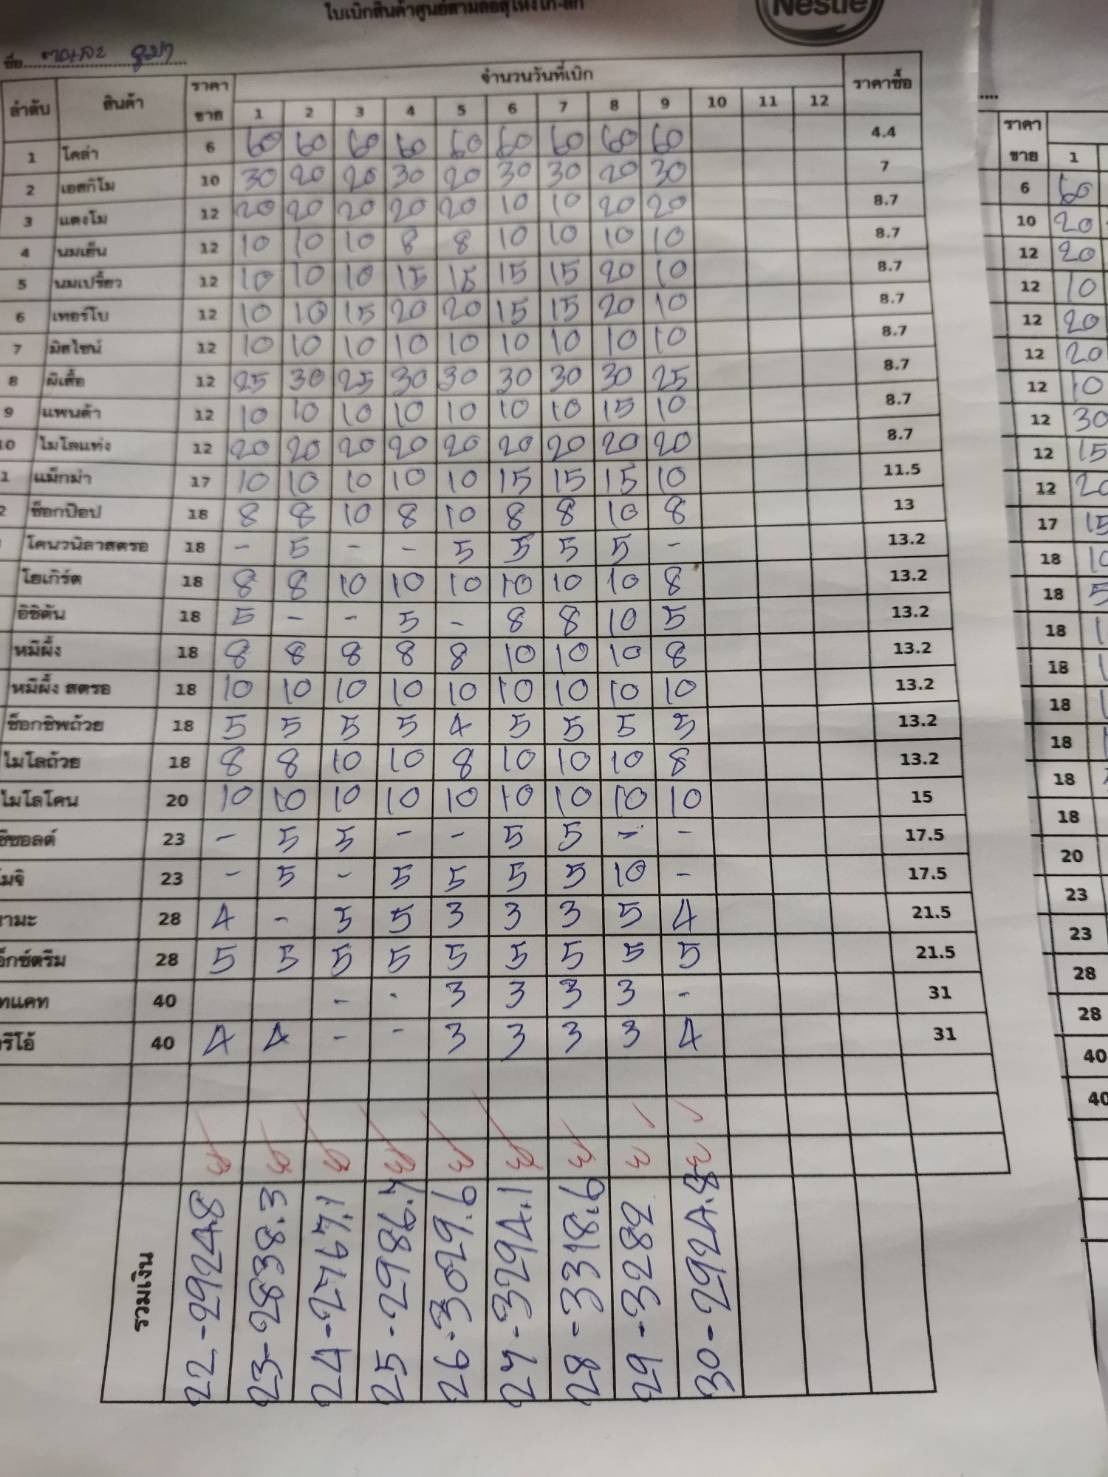 ใบเบิกสินค้าศูนย์สามล้อ
Nestlé
ชื่อ
ลำดับ สินค้า ราคาขาย จำนวนวันที่เบิก ราคาซื้อ
1 2 3 4 5 6 7 8 9 10 11 12
1 โคล่า 6 60 60 60 60 60 60 60 60 60 4.4
2 เอสกิโม 10 30 20 20 30 20 30 30 20 30 7
3 แตงโม 12 20 20 20 20 20 10 10 20 20 8.7
4 นมเย็น 12 10 10 10 8 8 10 10 10 10 8.7
5 นมเปรี้ยว 12 10 10 10 15 15 15 15 20 10 8.7
6 เทอร์โบ 12 10 10 15 20 20 15 15 20 10 8.7
7 มิตไซน์ 12 10 10 10 10 10 10 10 10 10 8.7
8 ผีเสื้อ 12 25 30 25 30 30 30 30 30 25 8.7
9 แพนด้า 12 10 10 10 10 10 10 10 15 10 8.7
0 ไมโลแท่ง 12 20 20 20 20 20 20 20 20 20 8.7
1 แม็กม่า 17 10 10 10 10 10 15 15 15 10 11.5
2 ช็อกป๊อป 18 8 8 10 8 10 8 8 10 8 13
โคนวนิลาสตรอ 18 - 5 - - 5 5 5 5 - 13.2
โยเกิร์ต 18 8 8 10 10 10 10 10 10 8 13.2
อิชิตัน 18 5 - - 5 - 8 8 10 5 13.2
หมีผึ้ง 18 8 8 8 8 8 10 10 10 8 13.2
หมีผึ้ง สตรอ 18 10 10 10 10 10 10 10 10 10 13.2
ช็อกชิพถ้วย 18 5 5 5 5 4 5 5 5 5 13.2
ไมโลถ้วย 18 8 8 10 10 8 10 10 10 8 13.2
ไมโลโคน 20 10 10 10 10 10 10 10 10 10 15
ซีซอลต์ 23 - 5 5 - - 5 5 - - 17.5
มจิ 23 - 5 - 5 5 5 5 10 - 17.5
ามะ 28 4 - 5 5 3 3 3 5 4 21.5
อ็กซ์ตรีม 28 5 5 5 5 5 5 5 5 5 21.5
ทแคท 40 - - 3 3 3 3 - 31
รีโอ้ 40 4 4 - - 3 3 3 3 4 31
รวมเงิน
22-2924.8
23-2838.3
24-2767.1
25-2986.7
26-3029.6
27-3294.1
28-3318.6
29-3282
30-2924.8
ราคาขาย 1
6 60
10 20
12 20
12 10
12 20
12 20
12 10
12 30
12 15
12 20
17 15
18 10
18 5
18
18
18
18
18
18
20
23
23
28
28
40
40